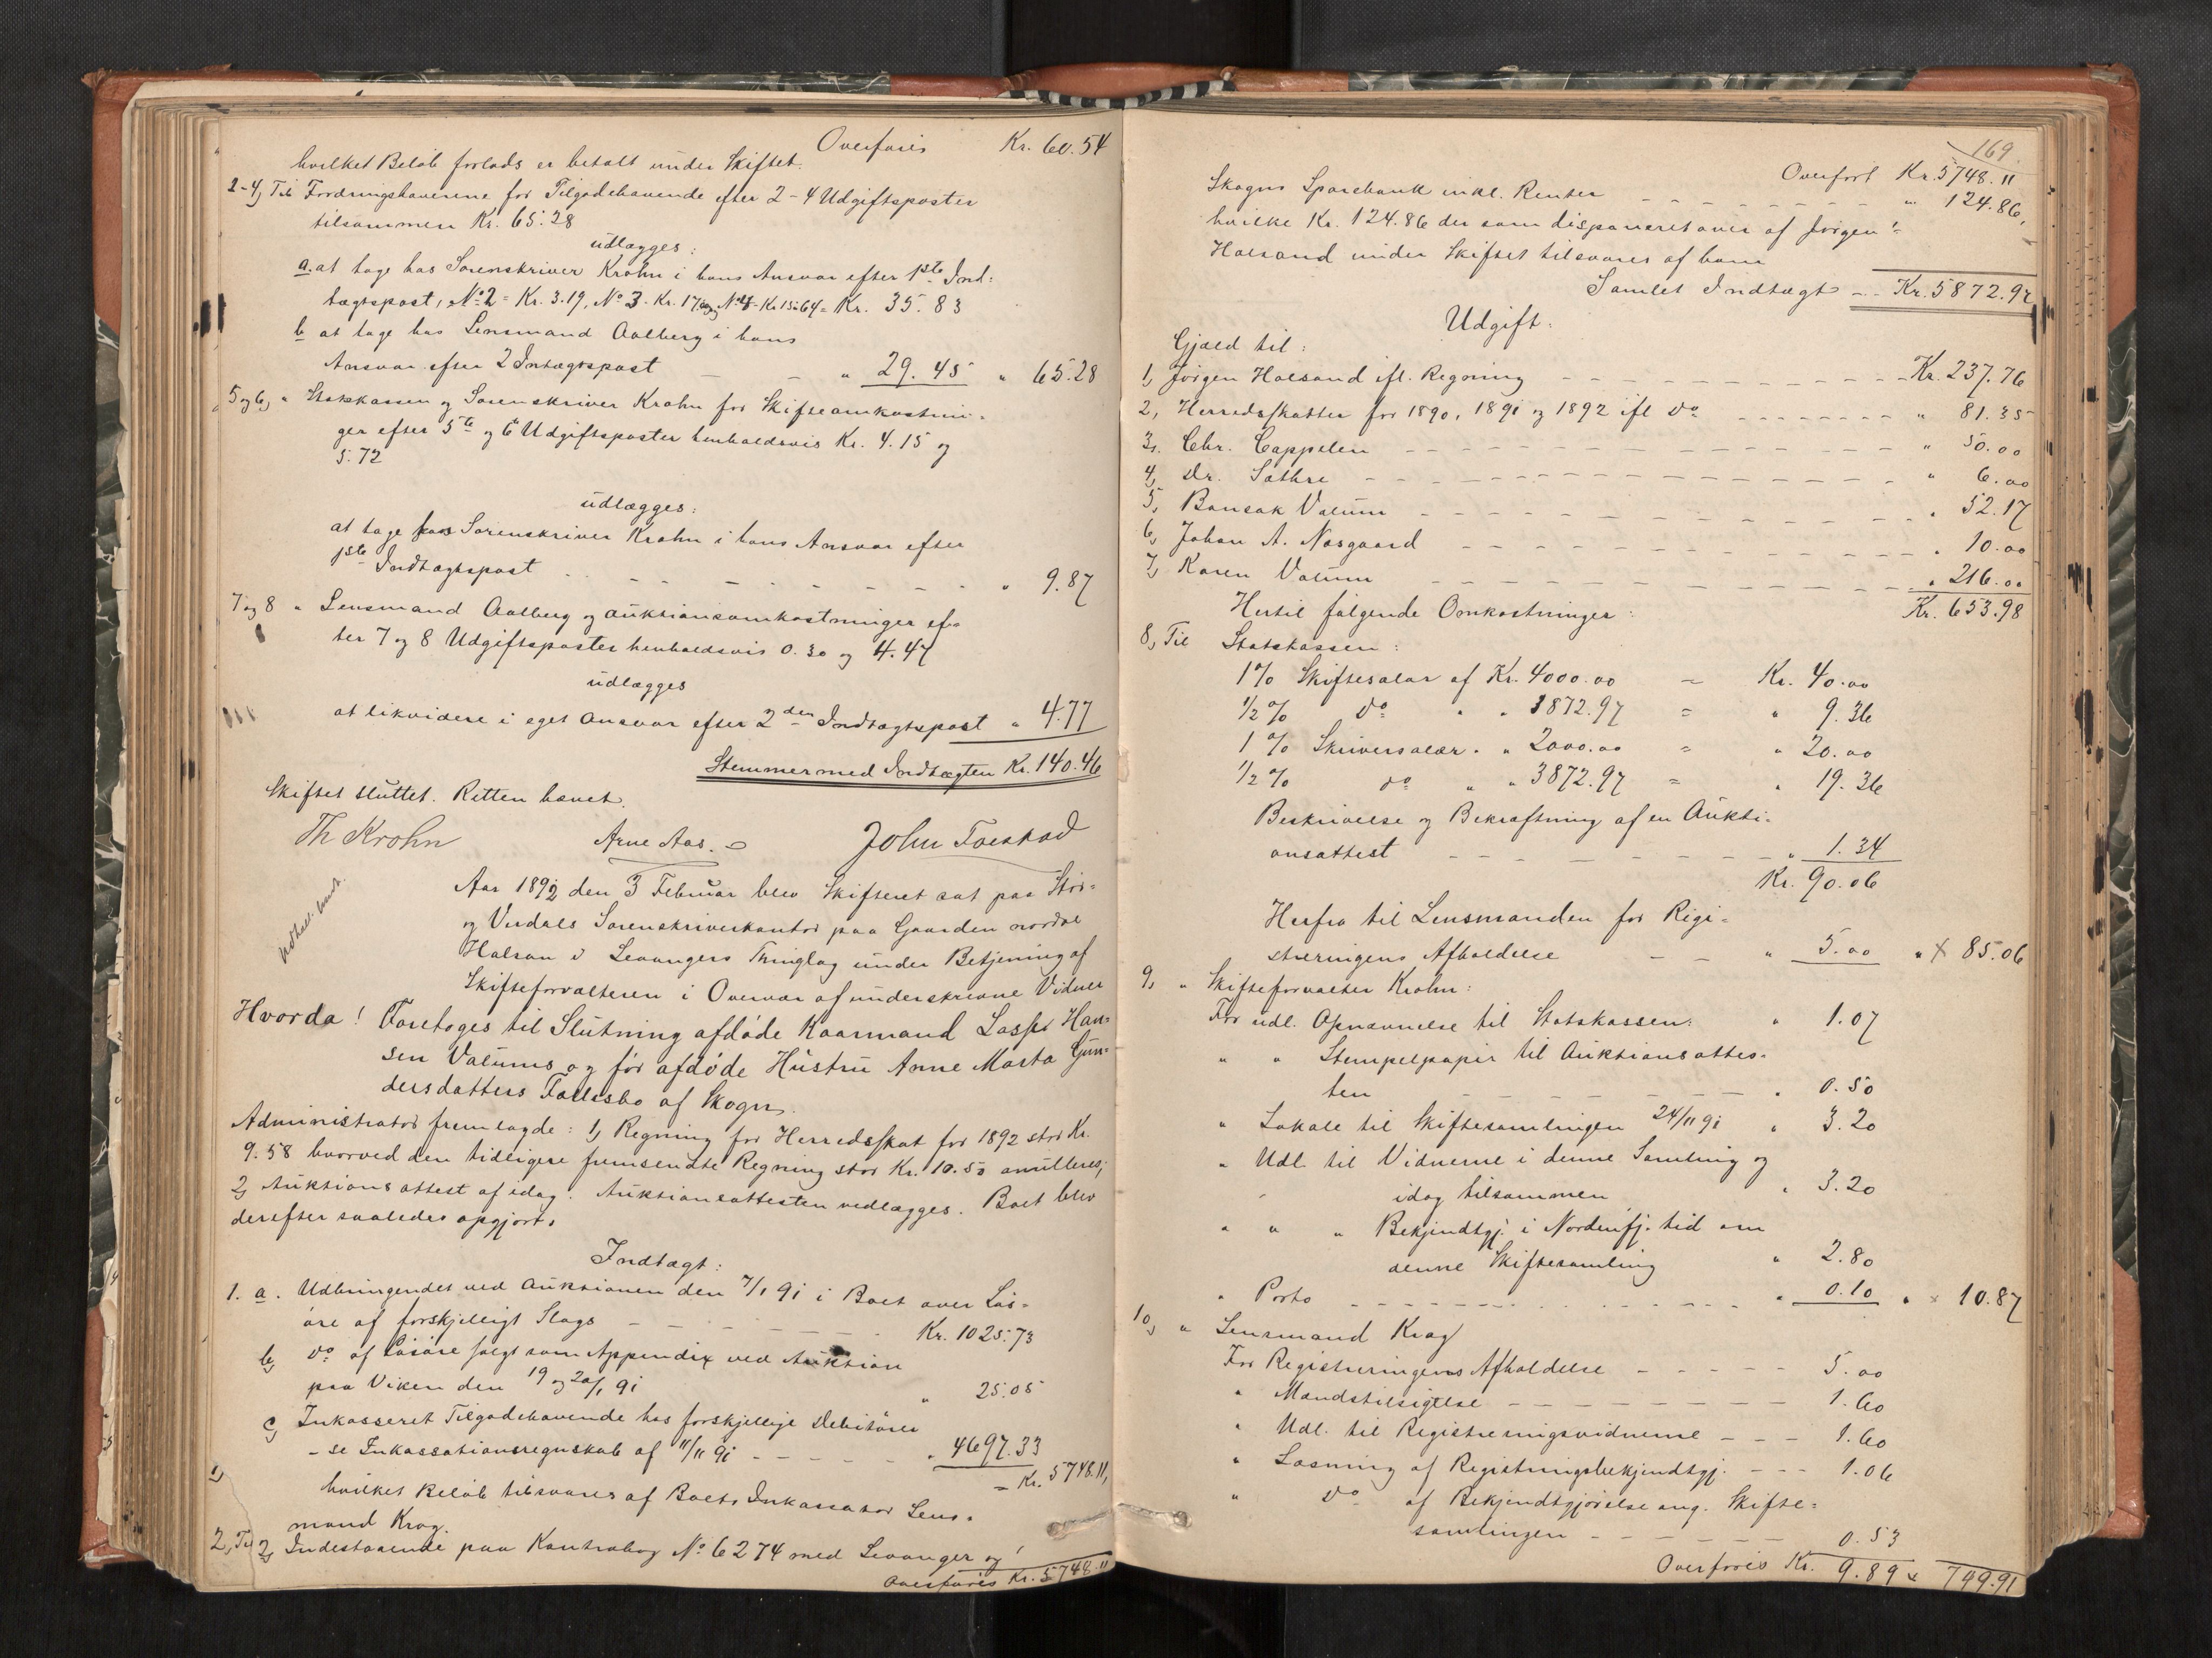 Overføris Kr. 60.54
hvilket Beløb forlods er betalt under Skiftet.
2-4, Til Fordringshaverne for Tilgodehavende efter 2-4 Udgiftsposter
tilsammen Kr. 65.28
udlægges:
a. at tage hos Sorenskriver Krohn i hans Ansvar efter 1ste Ind-
tægtspost, No 2 = Kr. 3.19, No 3 - Kr. 17.00 og No 4 - Kr 15.64 = Kr. 35.83
b at tage hos Lensmand Aalberg i hans
Ansvar efter 2 Indtægtspost - - " 29.45 " 65.28
5 og 6, " Statskassen og Sorenskriver Krohn for Skifteomkostnin-
ger efter 5te og 6 Udgiftsposter henholdsvis Kr. 4.15 og
5.72
udlægges:
at tage hos Sorenskriver Krohn i hans Ansvar efter
1ste Indtægtspost - - - - - - - - " 9.87
7 og 8 " Lensmand Aalberg og Auktionsomkostninger ef-
ter 7 og 8 Udgiftsposter henholdsvis 0.30 og 4.47
udlægges
at likvidere i eget Ansvar efter 2den Indtægtspost " 4.77
Stemmer med Indtægten Kr. 140.46
Skiftet sluttet. Retten hævet.
Th Krohn Arne Aas. John Foestad
Aar 1892 den 3 Februar blev Skifteret sat paa Stør-
og Verdals Sorenskriverkontor paa Gaarden nordre
Halsan i Levangers Thinglag under Betjening af
Skifteforvalteren i Overvær af underskrevne Vidner
Hvorda! Foretoges til Slutning afdøde Kaarmand Lasse Han-
sen Valums og før afdøde Hustru Anne Marta Gun-
dersdatters Fællesbo af Skogn.
Administrator fremlagde: 1, Regning for Herredsskat for 1892 stor Kr.
9.58 hvorved den tidligere fremsendte Regning stor Kr. 10.50 anulleres;
2, Auktionsattest af idag. Auktionsattesten vedlægges. Boet blev
derefter saaledes opgjort.
Indtægt:
1. a. Udbringendet ved Auktionen den 7/1 91 i Boet over Løs-
øre af forskjelligt Slags - - - - - - Kr. 1025.73
b, do af Løsøre solgt som Appendix ved Auktion
paa Viken den 19 og 20/1 91 " 25.05
c, Inkasseret Tilgodehavende hos forskjellige Debitorer
- se Inkassationsregnskab af 11/11 91 - - - - - " 4697.33
= Kr. 5748.11,
hvilket Beløb tilsvares af Boets Inkassator Lens-
mand Krog.
2, Indestaaende paa Kontrabog No 6274 med Levanger og
Overføris Kr. 5748.11
169.
Overført Kr. 5748.11
Skogns Sparebank inkl. Renter - - - - - - - - " 124.86,
hvilke Kr. 124.86 der som disponeret over af Jørgen
Holsand under Skiftet tilsvares af ham
Samlet Indtægt - - Kr. 5872.97
Udgift:
Gjæld til:
1, Jørgen Holsand ifl. Regning - - - - - - - - - - - Kr. 237.76
2, Herredsskatter for 1890, 1891 og 1892 ifl do - - - - - - - - " 81.35
3, Chr. Cappelen - - - - - - - - - - - - - - " 50.00
4, Dr. Sæthre - - - - - - - - - - - - - - - " 6.00
5, Bonsak Valum - - - - - - - - - - - - - " 52.17
6, Johan A. Næsgaard - - - - - - - - - - - - " 10.00
7, Karen Valum - - - - - - - - - - - - - " 216.00
Hertil følgende Omkostninger: Kr. 653.98
8, Til Statskassen:
1 % Skiftesalær af Kr. 4000.00 = Kr. 40.00
1/2 % do " " 1872.97 = " 9.36
1 % Skriversalær " " 2000.00 = " 20.00
1/2 % do " " 3872.97 = " 19.36
Beskrivelse og Bekræftning af en Aukti-
onsattest - - - - - - - - " 1.34
Kr. 90.06
Herfra til Lensmanden for Regi-
streringens Afholdelse - - " 5.00 " x 85.06
9, " Skifteforvalter Krohn:
For udl. Opnævnelse til Statskassen: " 1.07
" " Stempelpapir til Auktionsattes-
ten - - - - - - - - " 0.50
" Lokale til Skiftesamlingen 24/11 91 " 3.20
" Udl. til Vidnerne i denne Samling og
idag tilsammen " 3.20
" " " Bekjendtgj. i Nordenfj. tid om
denne Skiftesamling " 2.80
" Porto - - - - - - - - - - - - " 0.10 " x 10.87
10, " Lensmand Krog
For Registreringens Afholdelse - - - - - 5.00
" Mandstilsigelse - - - - - - - - - 1.60
" Udl. til Registreringsvidnerne - - - 1.60
" Læsning af Registringsbekjendtgj. - - - 1.06
" do af Bekjendtgjørelse ang. Skifte-
samlingen - - - - - - - 0.53
Overføris Kr. 9.89 x 749.91